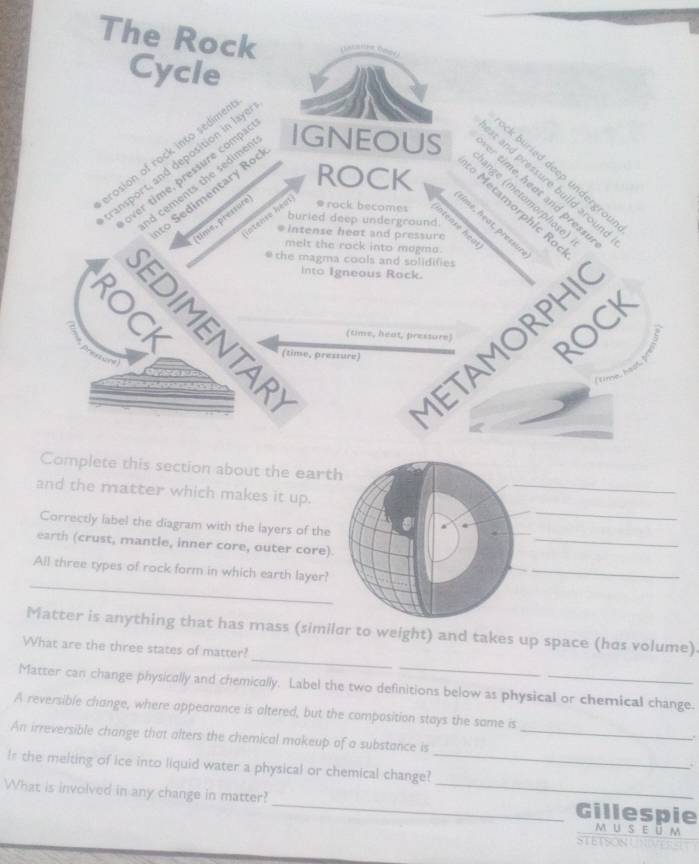 The Rock
Cycle
(intense heat)
IGNEOUS
ROCK
• erosion of rock into sediments.
• transport, and deposition in layers.
• over time, pressure compacts
and cements the sediments
into Sedimentary Rock.
(time, pressure)
(intense heat)
• rock becomes
buried deep underground.
• intense heat and pressure
melt the rock into magma.
• the magma cools and solidifies
into Igneous Rock.
(intense heat)
(time, heat, pressure)
• rock buried deep underground.
• heat and pressure build around it.
• over time, heat and pressure
change (metamorphose) it
into Metamorphic Rock.
SEDIMENTARY
ROCK
(time, pressure)
(time, heat, pressure)
(time, pressure)
METAMORPHIC
ROCK
(time, heat, pressure)
Complete this section about the earth
and the matter which makes it up.
Correctly label the diagram with the layers of the
earth (crust, mantle, inner core, outer core).
All three types of rock form in which earth layer?
Matter is anything that has mass (similar to weight) and takes up space (has volume).
What are the three states of matter?
Matter can change physically and chemically. Label the two definitions below as physical or chemical change.
A reversible change, where appearance is altered, but the composition stays the same is
An irreversible change that alters the chemical makeup of a substance is
Is the melting of ice into liquid water a physical or chemical change?
What is involved in any change in matter?
Gillespie
MUSEUM
STETSON UNIVERSITY